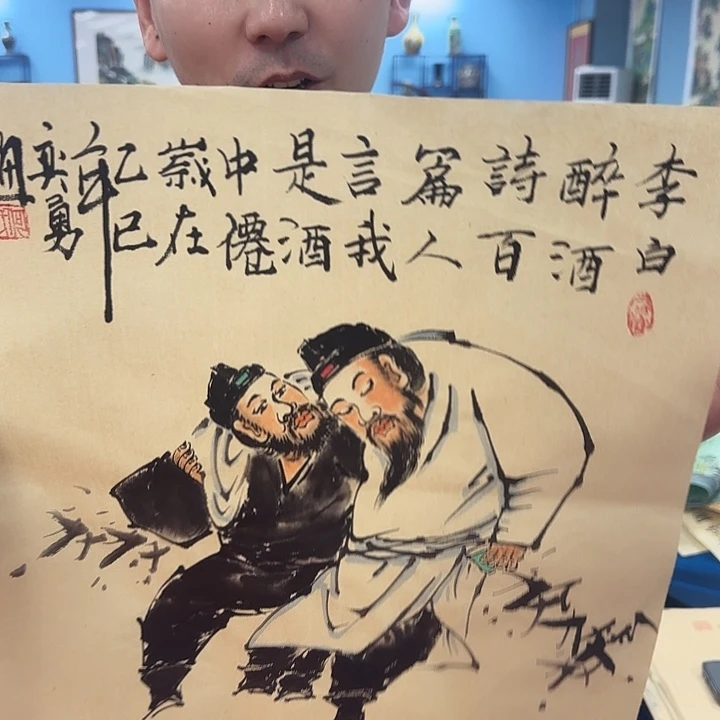 李白
醉酒
詩百
篇人
言我
是酒
中僊
歲在
乙巳
年
勇